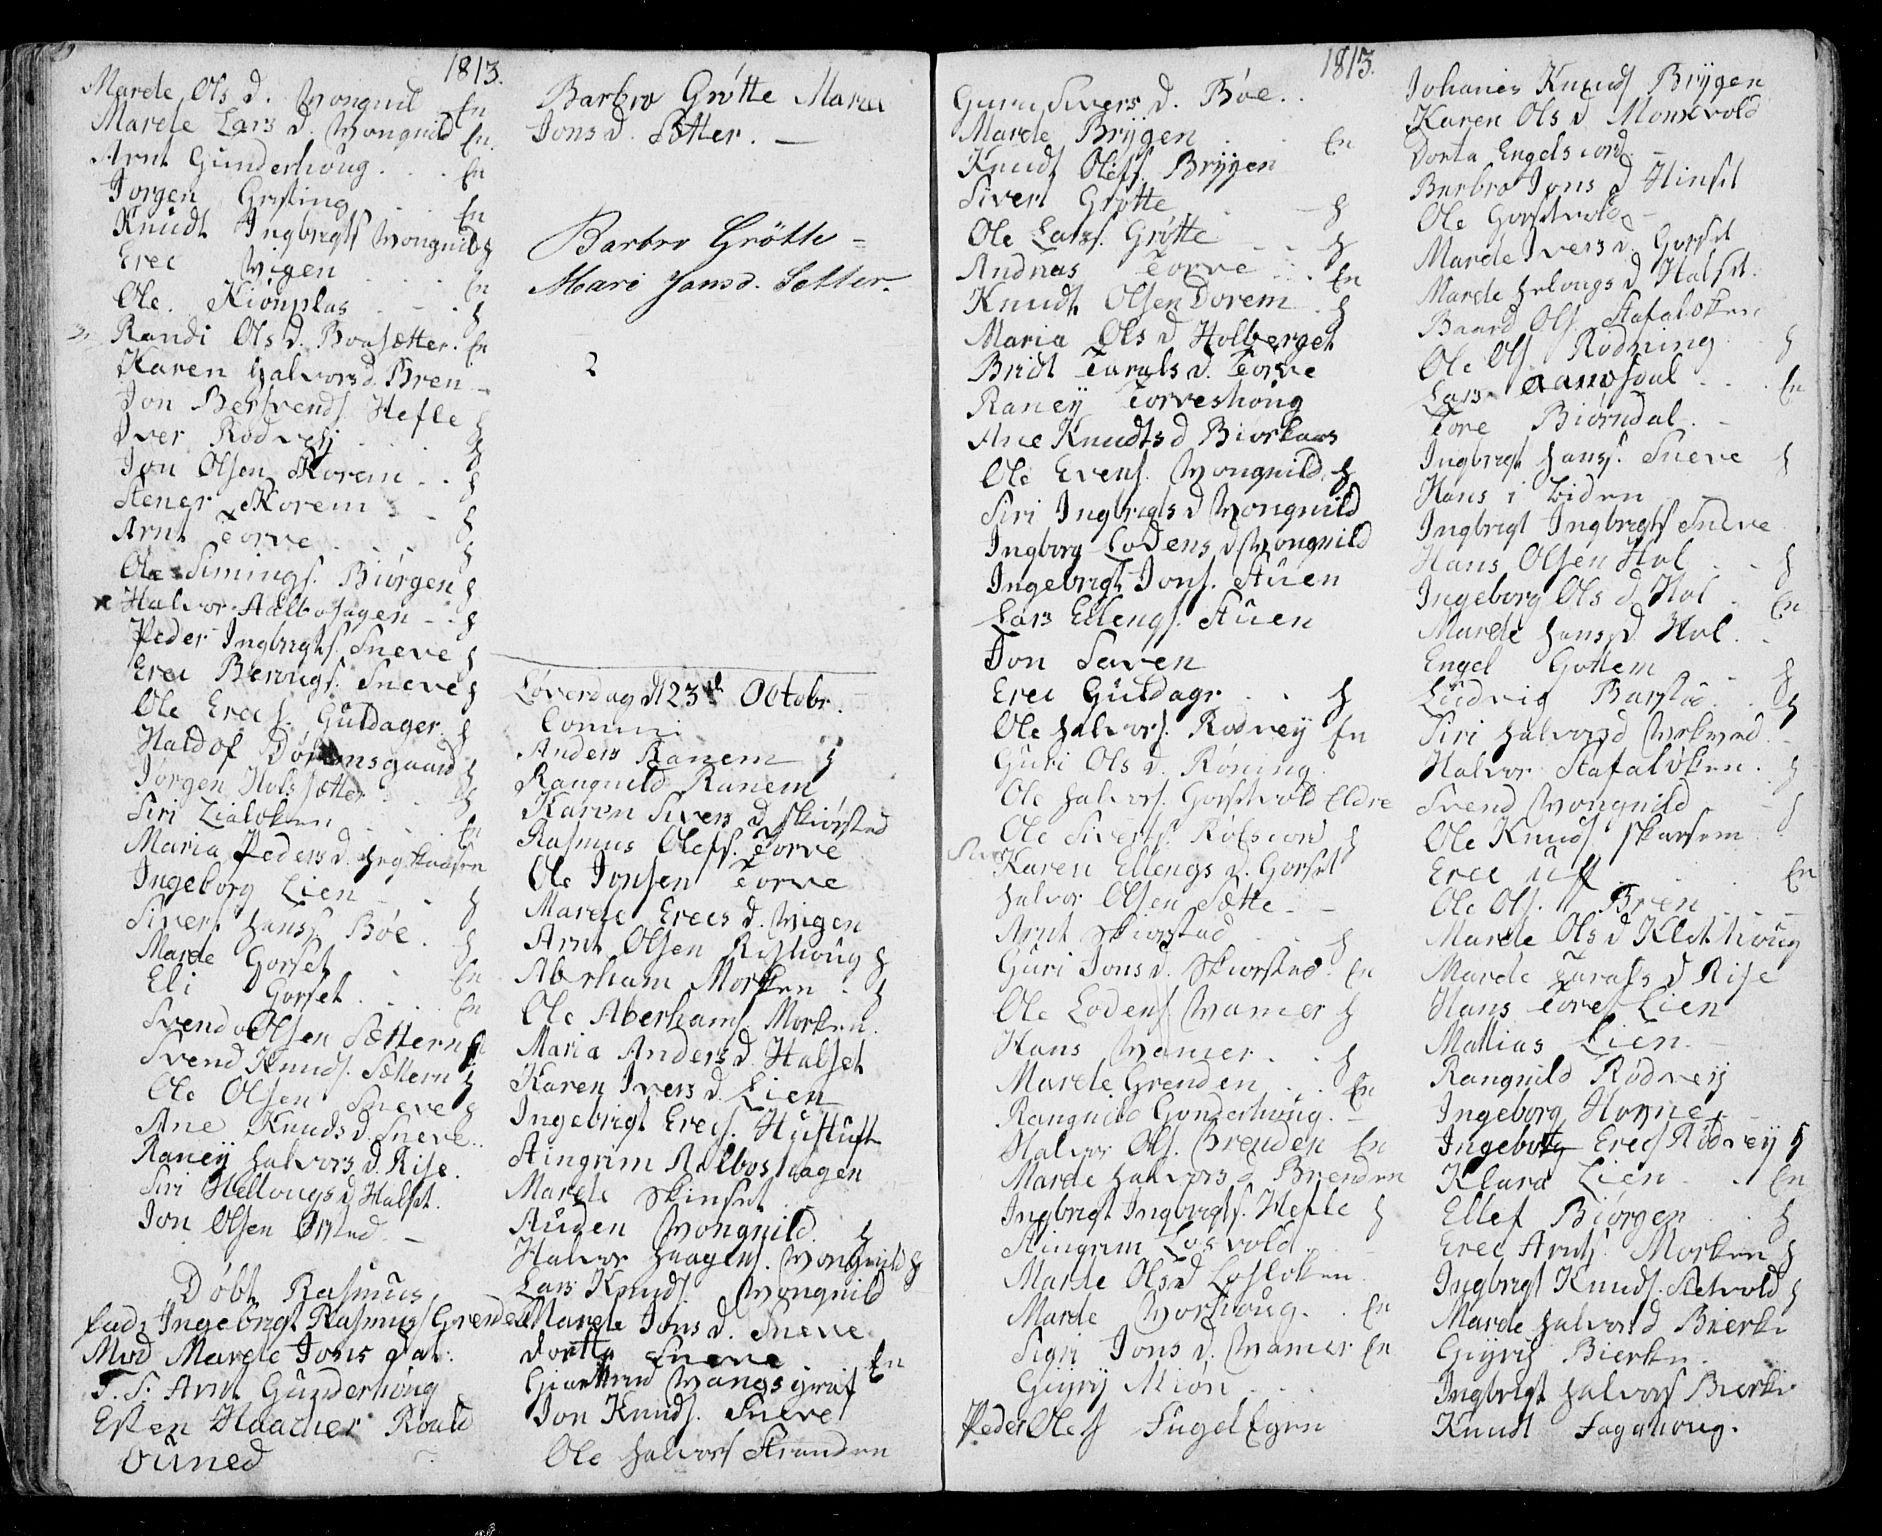 1813.
Marele Ols d. Wongnil En
Marele Lars d. Wongnild En.
Arnt Gunderhoug . . . En
Jorgen Grasting . . . En
Knudt Ingbrigts Wongnild h
Erec Wigen . . . . En
Ole. Kiönplas . . . h
Randi Ols d. Boasætter. En
Karen halvors d. Bren
Jon Bersvends. Hefle h
Iver Rodveij . . . h
Jon Olsen Skorem . . h
Stener Skorem . . h
Arnt Torve . . . h
Ole Simings. Biörgen h
Halvor Aalbosagen - - h
Peder Ingbrigts. Sneve h
Erec Berougs. Sneve h
Ole Erecs. Guldager. h
Haldof Dörumsgaard h
Jörgen Holssætter . . h
Siri Lialöken . . . En
Maria Peders d.
Ingeborg Lien - - h
Sivert hans. Böe . h
Marele Gorset . En
Eli Gorset . . . . En
Svend Olsen Sættern h
Svend Knuds. Sættern h
Ole Olsen Sneve h
Ane Knuds d. Sneve . .
Raneij halvors d. Rise.
Siri Hellougs d. Halset.
Jon Olsen Örsted. —
Döbt Rasmus,
fad: Ingebrigt Rasmuss Grendal
Mod Marele Jons dat:
F. F: Arnt Gunderhoug
Esten Haacher Roald
Ouned
Barbro Grötte Maria
Jons d. Sætter. —
Barbro Grötte —
Mari Jonsd. Setter.
2
Löverdag d 23de Octobr.
Commu:
Anders Ranem h
Rangnild Ranem
Karen Sivers d. Skiörstad
Rasmus Olefs. Torve
Ole Jonsen Torve
Marele Erecs d. Wigen
Arnt Olsen Rishoug h
Aberham Morken . h
Ole Aberhams. Morken.
Maria Anders d. Halset
Karen Ivers d. Lien
Ingebrigt Erecs. Hustuft
Stingrim Aalboshagen
Marele Skinset
Auden Wongnild. h
Halvor haagens. Wongnild h
Lars Knuds. Wongnild
Marele Jons d. Sneve
Dortte Sneve . . En
Giarthrud Wangsgraf
Jon Knuds. Sneve
Ole halvors Stranden
1813.
Guru Sivers d. Böe . .
Marele Brijgen . . En
Knudt Olefs. Brijgen
Sivert Grötte . — h
Ole Lars. Grötte . - - h
Andreas Torve . . . En
Knudt Olsen Dorem . h
Maria Ols d. Holberget
Bridt Tarals d. Torve
Raneij Torveshoug
Ane Knudts d Biorkaas
Ole Evens. Wongnild. h
Siri Ingbrigts d Wongnild
Ingborg Lodens d Wongnild
Ingebrigt Jons. Stuen
Lars Ellengs. Stuen
Jon Seven
Erec Guldagr . . h
Ole halvors. Rodveij En
Guri Ols d. Röning
Ole halvors. Gorsetvold Eldre
Ole Siverts. Rölsiord h
Karen Ellengs d. Gorset
halvor Olsen Sætte - -
Arnt Skiorstad . . h
Guri Jons d. Skiorstad. En
Ole Lodens Wamer h
Hans Wamer . . h
Marele Grenden . . En
Rangnild Gonderhoug. -
Halvor Ols. Grenden En
Marele halvors d Brenden
Ingbrigt Ingbrigts. Hefle h
Stingrim Losvold
Marele Ols d Losloken.
Marele Worhoug. . En
Sigri Jons d. Wamer En
Guyrij Mion . . .
Peder Olefs Fugelegen
Johanes Knuds Brijgen
Karen Ols d Monsvold
Dorta Engelsiord. -
Berbro Jons d Hinset
Ole Gorsetvold -
Marele Ivers d. Gorset
Marele helougs d Halset.
Baard Ols. Stafaloken
Ole Ols. Rodning. h
Lars Aamosdal . . . En
Tore Biörndal . -
Ingbrigt hans. Sneve h
Hans i Liden
Ingbrigt Ingbrigts Sneve
Hans Olsen Hol - - h
Ingeborg Ols d. Hol . En
Marele hans d. Hol. -
Engel Gottem . - h
Ludvig Barstad . . h
Siri halvors d
Halvor Stafalöken . h
Svend Wongnild - h
Ole Knuds. Skarsem
Erec Uff . . . En
Ole Ols. Bren - - -
Marele Ols d Kletthoug
Marele Tarals d Rise
Hans Tores Lien
Mattias Lien. —
Rangnild Rödveij
Ingeborg Horne . -
Ingeborg Erecs Rödveij h
Klara Lien . . En
Ellef Biörgen . . h
Erec Arnts. Morken h
Ingbrigt Knuds. Sletvold h
Marele halvors d Bierke
Guyrij Bierke.
Ingbrigt halvors Bierke
Knudt Fagahoug.